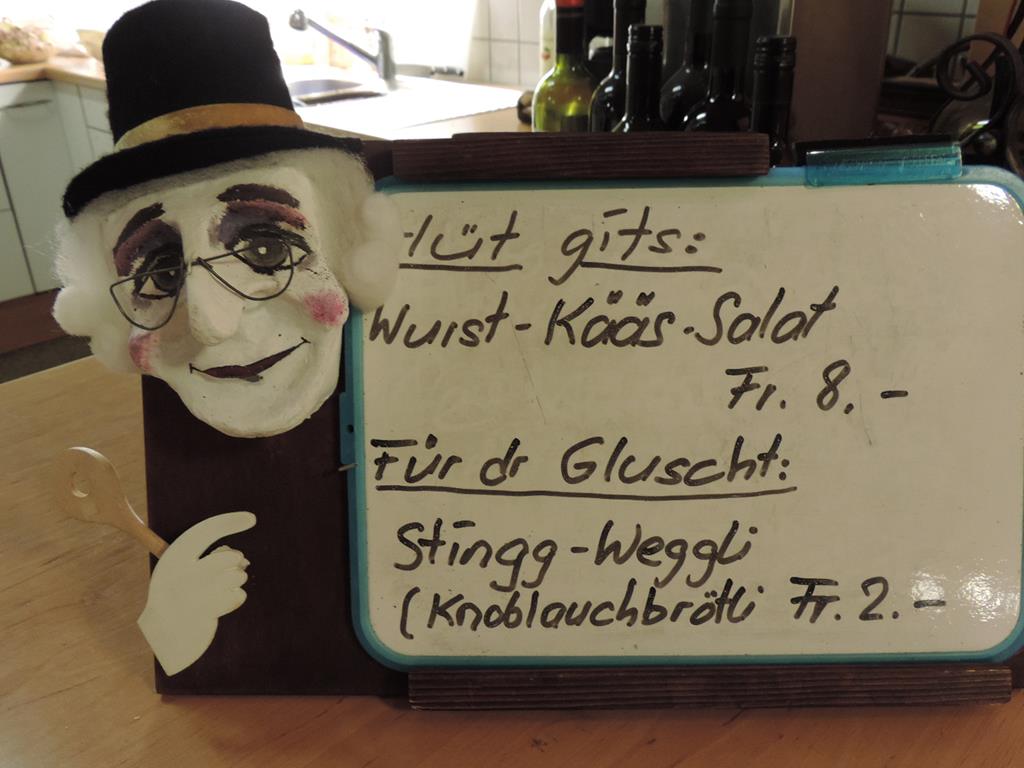 Hüt gits:
Wurst-Kääs-Salat
Fr. 8.-
Für dr Gluscht:
Stingg-Weggli
(Knoblauchbrötli Fr. 2.-